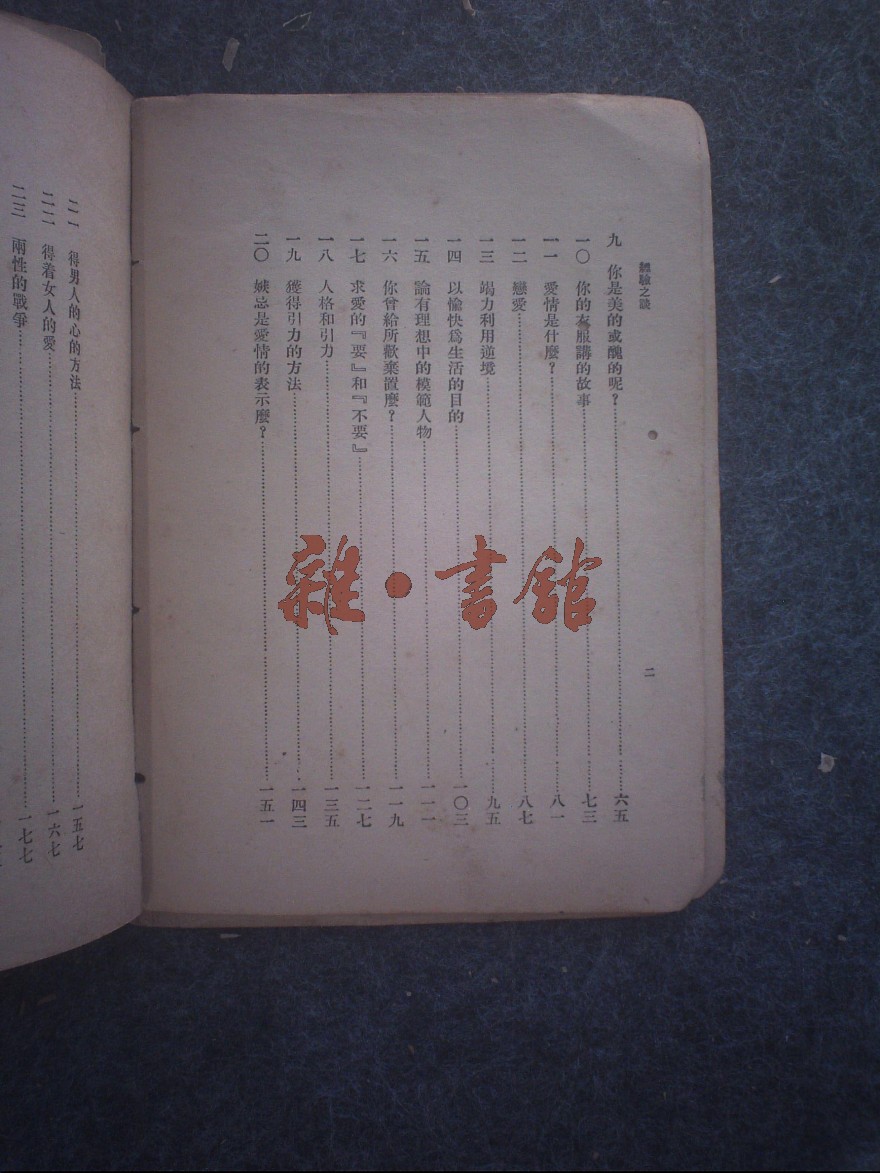 經驗之談
二
九　你是美的或醜的呢？……六五
一〇　你的衣服講的故事……七三
一一　愛情是什麼？……八一
一二　戀愛……八七
一三　竭力利用逆境……九五
一四　以愉快爲生活的目的……一〇三
一五　論有理想中的模範人物……一一一
一六　你曾給所歡棄置麼？……一一九
一七　求愛的『要』和『不要』……一二七
一八　人格和引力……一三五
一九　獲得引力的方法……一四三
二〇　嫉忌是愛情的表示麼？……一五一
二一　得男人的心的方法……一五七
二二　得着女人的愛……一六七
二三　兩性的戰爭……一七七
雜·書館